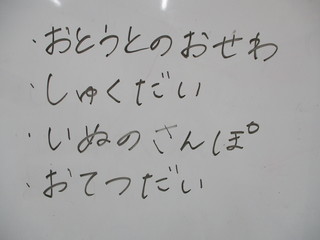 ・おとうとのおせわ
・しゅくだい
・いぬのさんぽ
・おてつだい